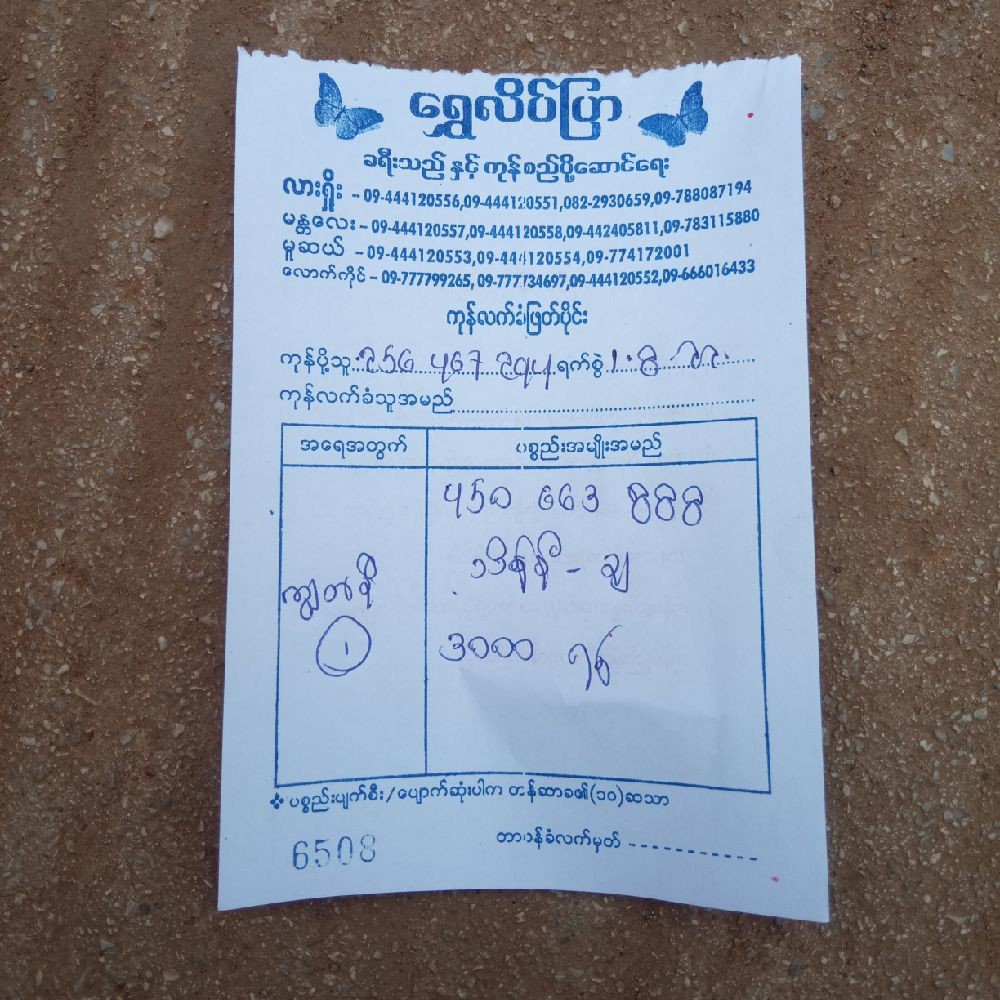 ရွှေလိပ်ပြာ
ခရီးသည် နှင့် ကုန်စည်ပို့ဆောင်ရေး
လားရှိုး - 09-444120556,09-444120551,082-2930659,09-788087194
မန္တလေး - 09-444120557,09-444120558,09-442405811,09-783115880
မူဆယ် - 09-444120553,09-444120554,09-774172001
လောက်ကိုင် - 09-777799265, 09-777734697,09-444120552,09-666016433
ကုန်လက်ခံဖြတ်ပိုင်း
ကုန်ပို့သူ 256 467 294 ရက်စွဲ 1.8.22
ကုန်လက်ခံသူအမည်
အရေအတွက် ပစ္စည်းအမျိုးအမည်
450 663 888
သိန္နီ - ချ
ကျွတစ်
1 3000
❖ ပစ္စည်းပျက်စီး/ပျောက်ဆုံးပါက တန်ဆာခ၏(၁၀)ဆသာ
6508 တာဝန်ခံလက်မှတ်